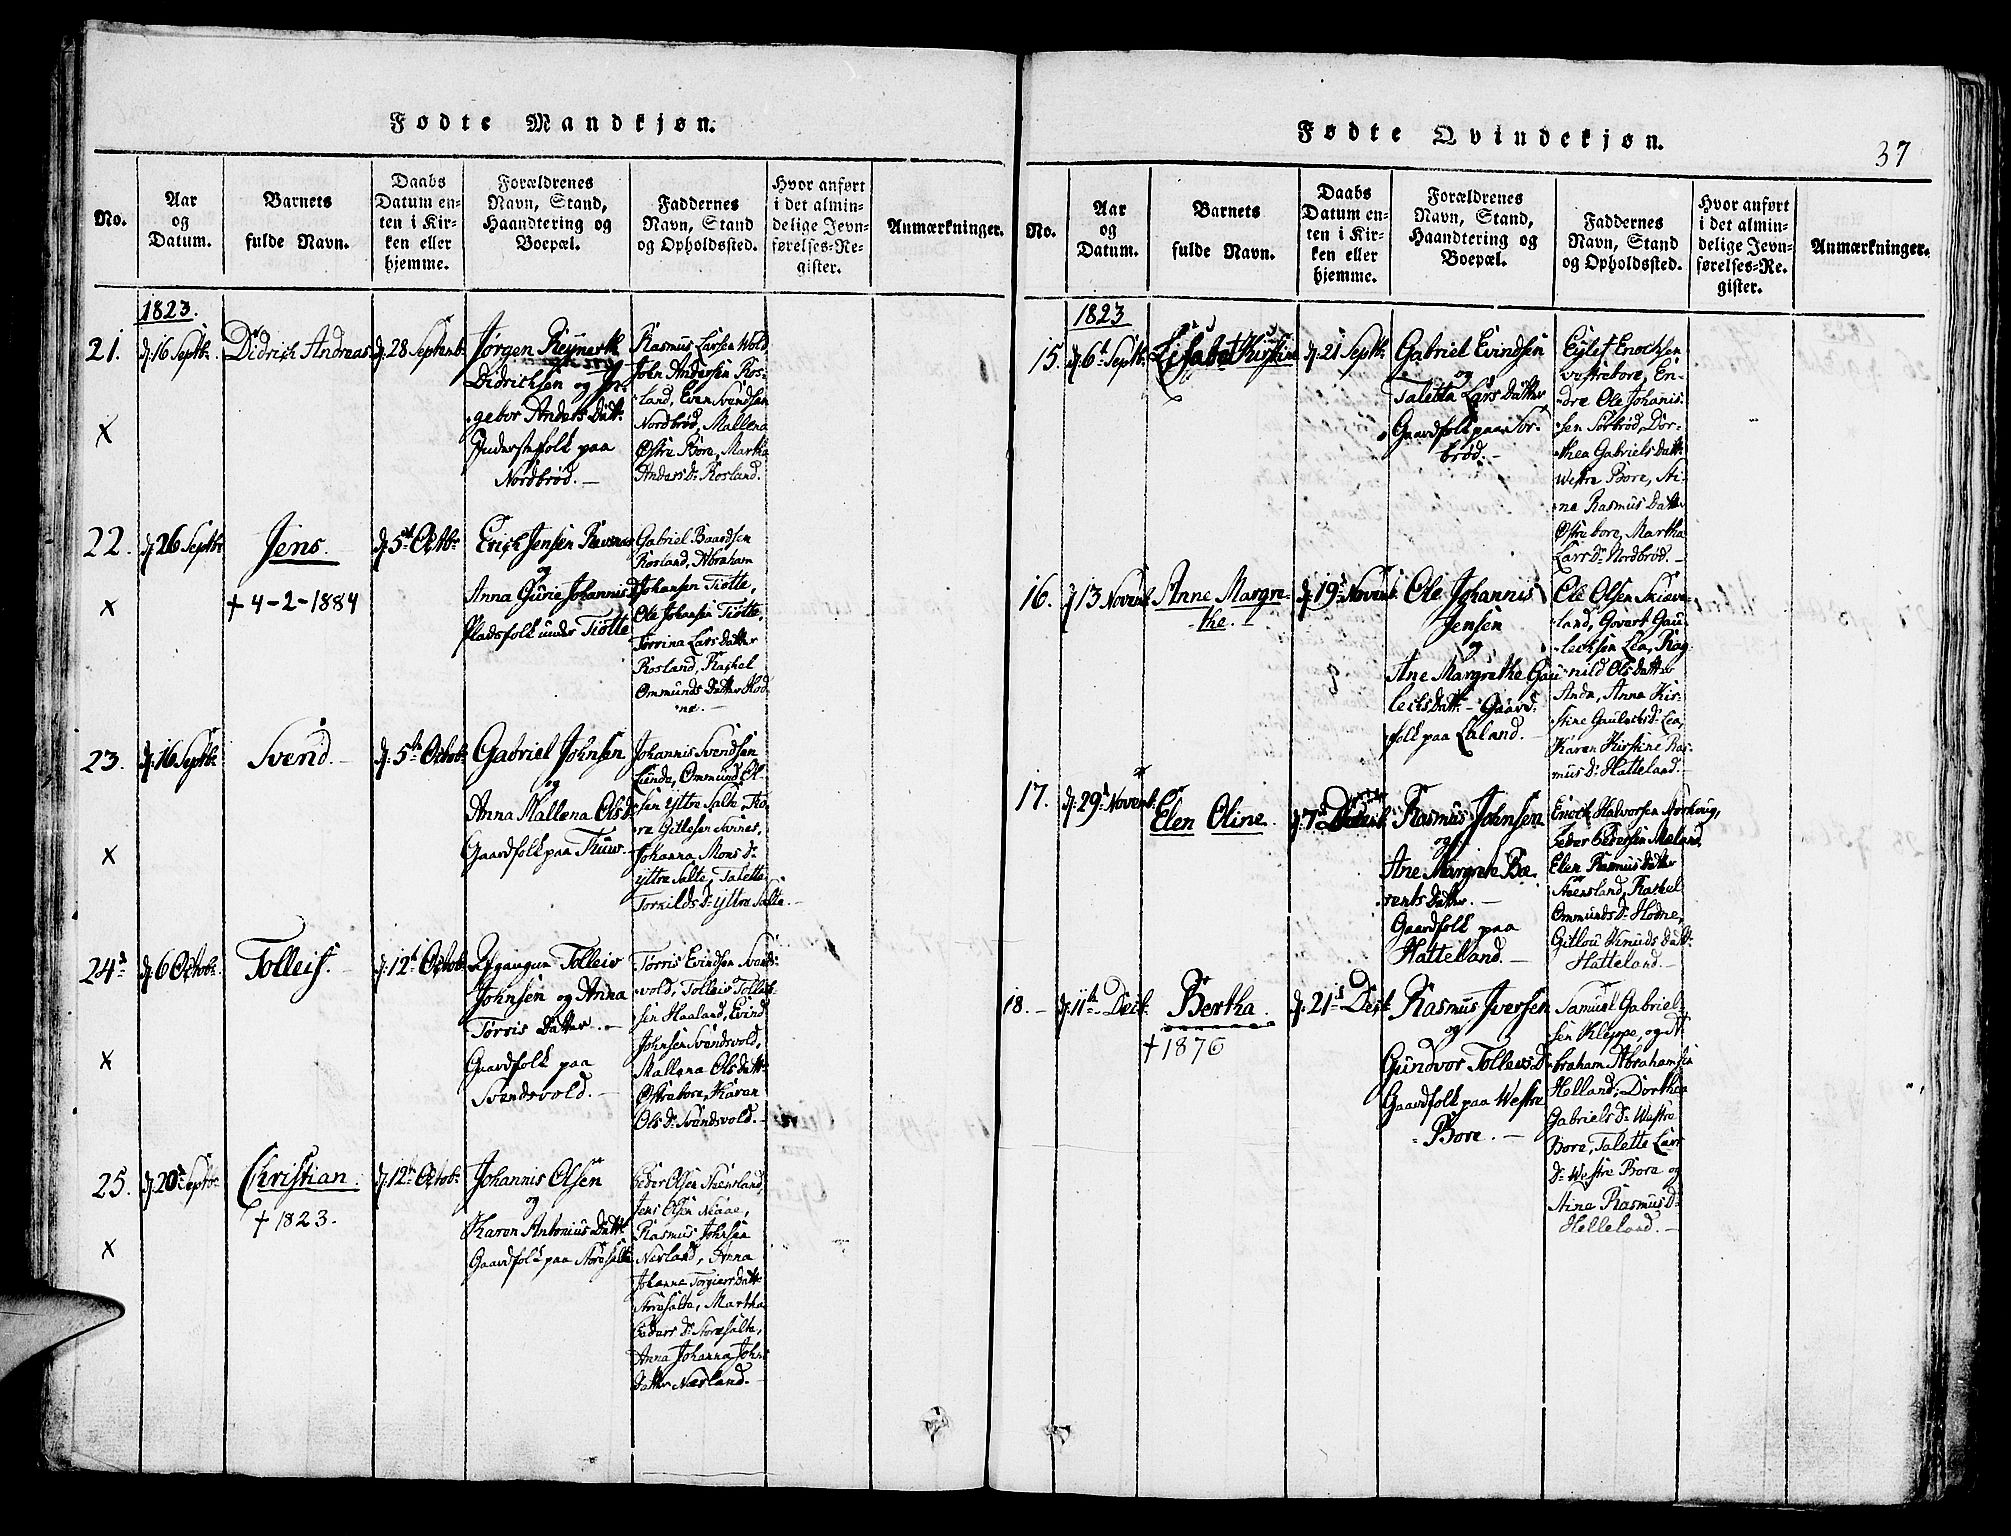 Fødte Mandkjøn.
No.
Aar
og
Datum.
Barnets
fulde Navn.
Daabs
Datum en-
ten i Kir-
ken eller
hjemme.
Forældrenes
Navn, Stand,
Haandtering og
Boepæl.
Faddernes
Navn, Stand
og Opholdssted.
Hvor anført
i det almin-
delige Jevn-
førelses-Re-
gister.
Anmærkninger.
1823.
21.
d: 16 Septbr
Didrich Andreas
d: 28 Septemb:
Jørgen Reÿnert
Didrichsen og In-
gebor Anders Datt:
Inderstefolk paa
Nordbrød. –
Rasmus Larsen Wold
John Andersen Ros-
land, Even Svendsen
Nordbrød, Mallena
Østre Bore, Martha
Anders D: Rosland.
X
22.
d: 26 Septbr
Jens.
+ 4-2-1884
d: 5te Octbr
Erich Jensen
og
Anna Gurie Johannis D:
Pladsfolk under Tiøtte
Gabriel Baardsen
Rosland, Abraham
Johansen Tiøtte,
Ole Johnsen Tiøtte,
Torrina Lars Datter
Rosland, Rachel
Ommunds Datter Hod-
ne. –
x
23.
d: 16 Septbr
Svend. –
d: 5te Octob:
Gabriel Johnsen
og
Anna Mallena Ols D:
Gaardfolk paa Tuw. –
Johannis Svendsen
Lende, Ommund Ol-
sen ÿttre Salte, To-
re Gitlesen Svines,
Johanna Mons D:
ÿttre Salte, Taletta
Torkilds D: ÿttre Salte. –
x
24de
d: 6 Octob:
Tolleif. –
d: 12te Octob:
Afgangen Tolleiv
Johnsen og Anna
Torris Datter. –
Gaardfolk paa
Svendsvold. –
Torris Evindsen Svends-
vold, Tolleiv Tolleiv-
sen Haaland, Evind
Johnsen Svendsvold,
Mallena Ols Datt:
Østrebore, Karen
Ols D: Svendsvold. –
x
25.
d: 20de Septbr
Christian.
+ 1823.
d: 12te Octob:
Johannis Olsen
og
Karen Antonius Datt:
Gaardfolk paa Storesalte
Peder Olsen Steensland,
Jens Olsen Niaae,
Rasmus Johnsen
Nerland, Anna
Johanna Torgiers Datt:
Storesalte, Martha
Peders D: Storesalte,
Anna Johanna Johns
Datter Nærland. –
x
Fødte Qvindekjøn.
37
No.
Aar
og
Datum.
Barnets
fulde Navn.
Daabs
Datum en-
ten i Kir-
ken eller
hjemme.
Forældrenes
Navn, Stand,
Haandtering og
Boepæl.
Faddernes
Navn, Stand
og Opholdssted.
Hvor anført
i det almin-
delige Jevn-
førelses-Re-
gister.
Anmærkninger.
1823
15.
d: 6te Septbr
Lisabet Kirstine
d: 21 Septbr
Gabriel Evindsen
og
Taletta Lars Datter
Gaardfolk paa Sør-
brød. –
Eÿlef Enochsen
vestrebore, En-
dre Ole Johanis-
sen Sørbrød, Dor-
thea Gabriels Datt:
Westre Bore, Sti-
ne Rasmus Datter
Østre bore, Martha
Lars D: Nordbrød. –
16.
d 13 Novemb:
Anne Margre-
the. –
d: 19de Novemb:
Ole Johannis
Jensen
og
Ane Margrethe Gau-
leits Datt: – Gaard-
folk paa Laland. –
Ole Olsen Skieve-
land, Govert Gau-
leitsen Lea, Rag-
nild Ols Datter
Anda, Anna Kir-
stine Gauleits D: Lea,
Karen Kirstine Ras-
mus D: Hatteland. –
17.
d: 29de Novemb:
Elen Oline.
d: 7de
Rasmus Johnsen
og
Ane Margrete Be-
rents Datter. –
Gaardfolk paa
Hatteland. –
Enoch Halvorsen
Peder Pedersen Meland,
Elen Rasmus Datter
Steensland, Rachel
Ommunds D: Hodne,
Gitlou Knuds Datt:
Hatteland. –
18. –
d: 11te Decb:
Bertha.
+ 1876
d: 21de Decb:
Rasmus Iversen
og
Gundvor Tolleivs D:
Gaardfolk paa Westre
Bore. –
Samuel Gabriel-
sen Kleppe, og A-
braham Abrahamsen
Helland, Dorthea
Gabriels D: Westre
Bore, Talette Lars
D: Westre Bore og
Stina Rasmus D:
Helleland. –